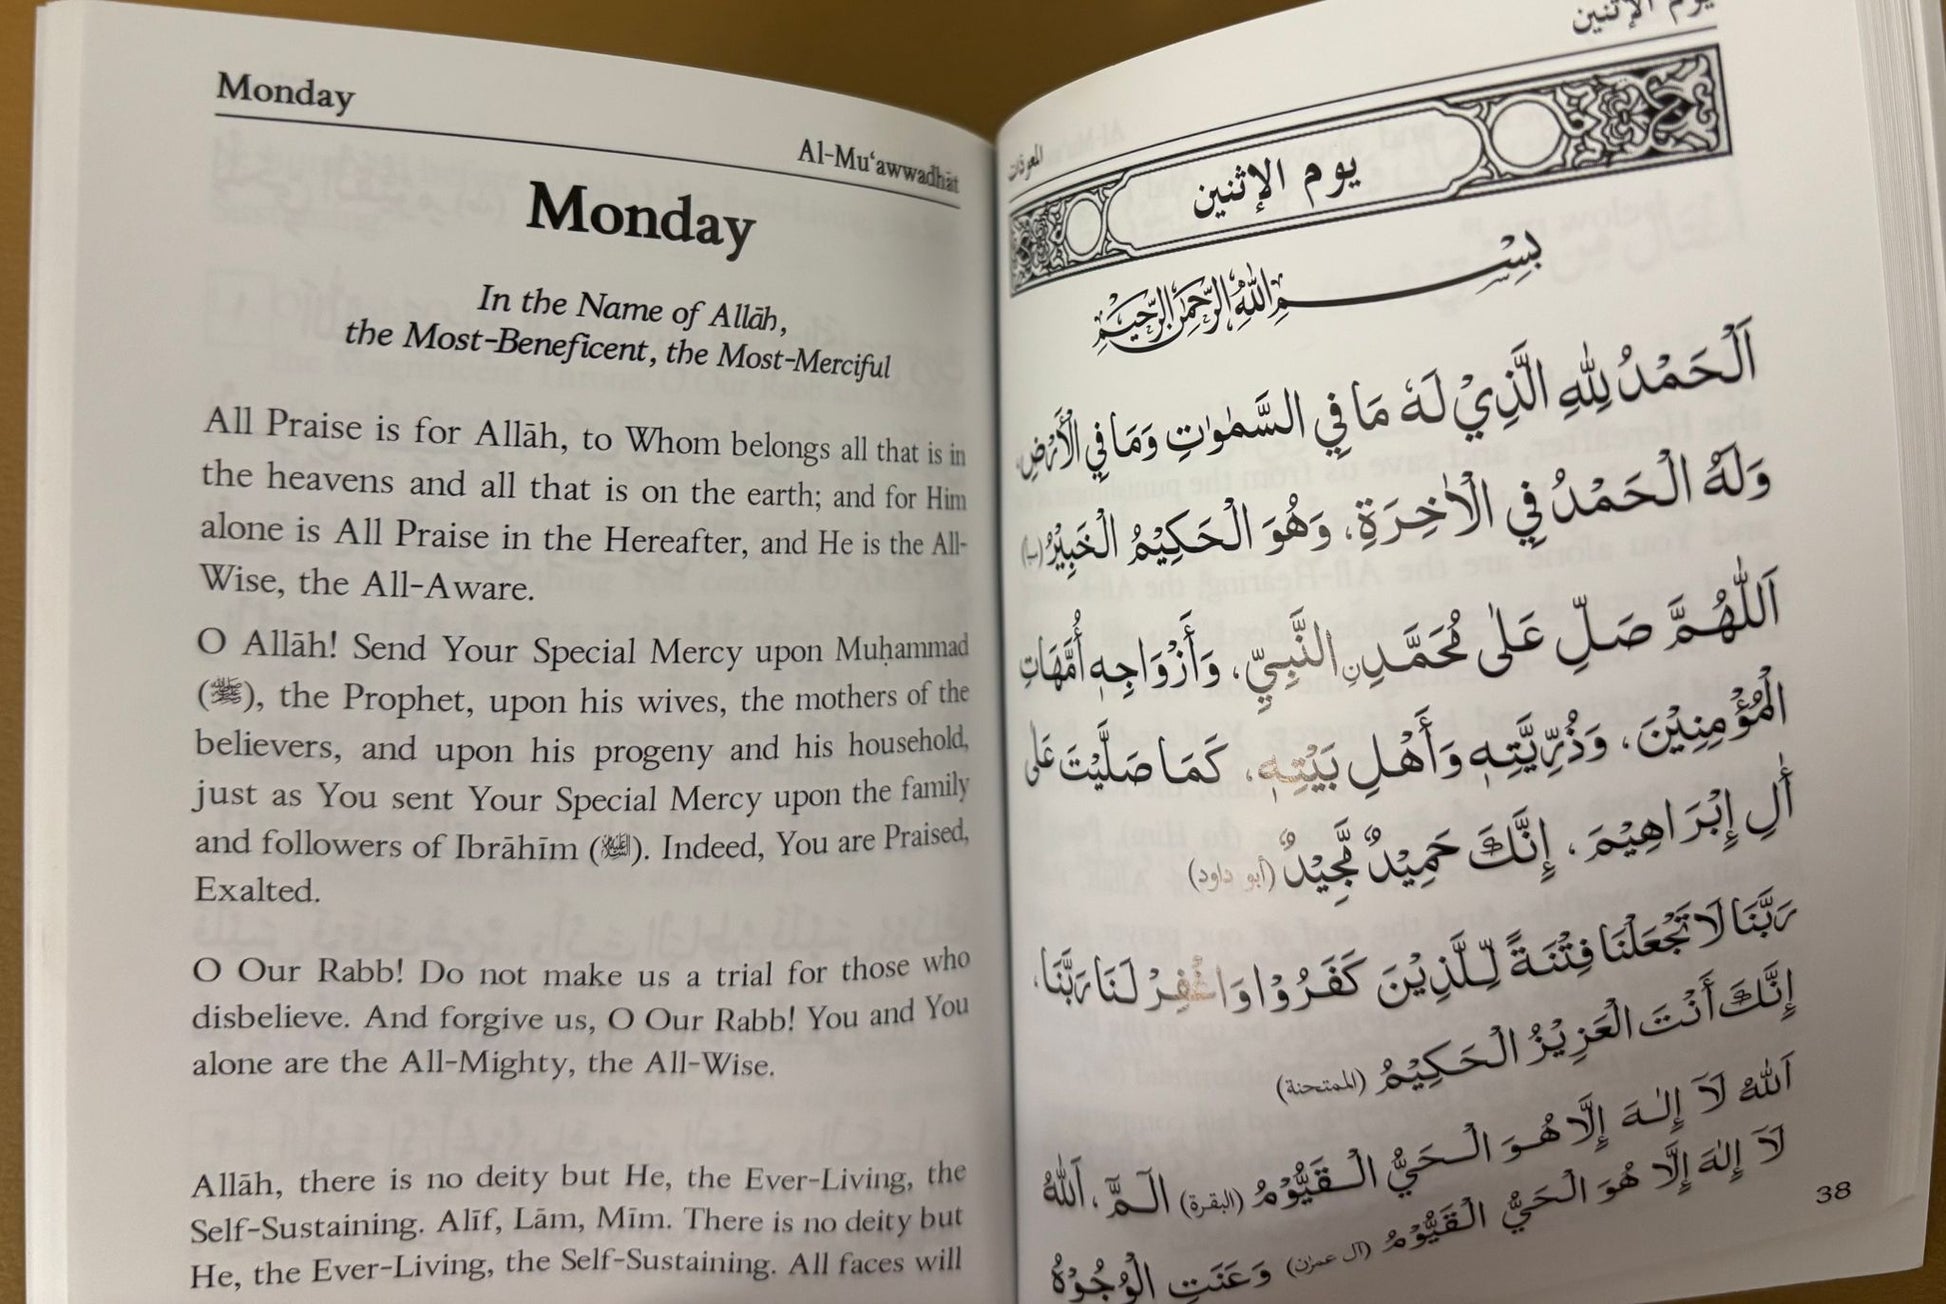 Monday
Al-Mu‘awwadhāt
Monday
In the Name of Allāh,
the Most-Beneficent, the Most-Merciful
All Praise is for Allāh, to Whom belongs all that is in
the heavens and all that is on the earth; and for Him
alone is All Praise in the Hereafter, and He is the All-
Wise, the All-Aware.
O Allāh! Send Your Special Mercy upon Muḥammad
(ﷺ), the Prophet, upon his wives, the mothers of the
believers, and upon his progeny and his household,
just as You sent Your Special Mercy upon the family
and followers of Ibrāhīm (). Indeed, You are Praised,
Exalted.
O Our Rabb! Do not make us a trial for those who
disbelieve. And forgive us, O Our Rabb! You and You
alone are the All-Mighty, the All-Wise.
Allāh, there is no deity but He, the Ever-Living, the
Self-Sustaining. Alīf, Lām, Mīm. There is no deity but
He, the Ever-Living, the Self-Sustaining. All faces will
يوم الإثنين
المعوذات
يوم الإثنين
بِسْمِ اللهِ الرَّحْمٰنِ الرَّحِيْمِ
اَلْحَمْدُ لِلّٰهِ الَّذِيْ لَهٗ مَا فِي السَّمٰوٰتِ وَمَا فِي الْأَرْضِ،
وَلَهُ الْحَمْدُ فِي الْاٰخِرَةِ، وَهُوَ الْحَكِيْمُ الْخَبِيْرُ (سبأ)
اَللّٰهُمَّ صَلِّ عَلٰى مُحَمَّدِنِ النَّبِيِّ، وَأَزْوَاجِهٖ أُمَّهَاتِ
الْمُؤْمِنِيْنَ، وَذُرِّيَّتِهٖ وَأَهْلِ بَيْتِهٖ، كَمَا صَلَّيْتَ عَلٰى
أٰلِ إِبْرَاهِيْمَ، إِنَّكَ حَمِيْدٌ مَّجِيْدٌ (أبو داود)
رَبَّنَا لَا تَجْعَلْنَا فِتْنَةً لِّلَّذِيْنَ كَفَرُوْا وَاغْفِرْ لَنَا رَبَّنَا،
إِنَّكَ أَنْتَ الْعَزِيْزُ الْحَكِيْمُ (الممتحنة)
اَللهُ لَآ إِلٰهَ إِلَّا هُوَ الْحَيُّ الْقَيُّوْمُ (البقرة) الٓمّٓ، اَللهُ
لَآ إِلٰهَ إِلَّا هُوَ الْحَيُّ الْقَيُّوْمُ (آل عمرٰن) وَعَنَتِ الْوُجُوْهُ
38